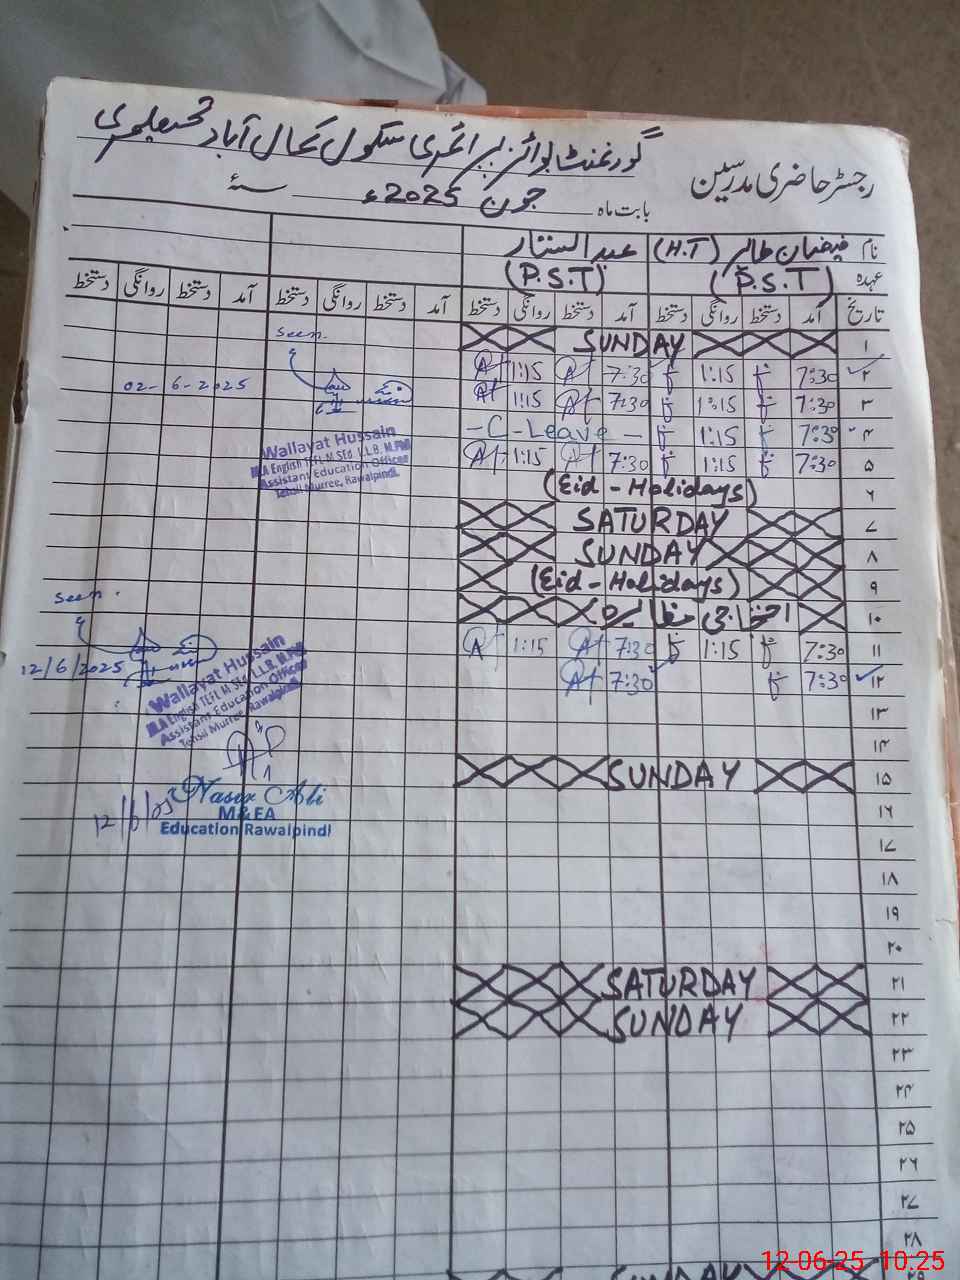 گورنمنٹ بوائز پرائمری سکول کمال آباد
رجسٹر حاضری مدرسین
بابت ماہ جون 2025ء سنہ
نام فیضان طاہر (H.T) عبدالستار
عہدہ (P.S.T) (P.S.T)
تاریخ آمد دستخط روانگی دستخط آمد دستخط روانگی دستخط آمد دستخط روانگی دستخط آمد دستخط روانگی دستخط
۱ SUNDAY
seen.
۲ 7:30 1:15 7:30 1:15
02-6-2025
۳ 7:30 1:15 7:30 1:15
۴ 7:30 1:15 -C-Leave-
Wallayat Hussain
M.A English TEFL M.SEd L.L.B. M.Phil
Assistant Education Officer
Tehsil Murree, Rawalpindi.
۵ 7:30 1:15 7:30 1:15
۶ (Eid-Holidays)
۷ SATURDAY
۸ SUNDAY
۹ (Eid-Holidays)
۱۰
seen.
۱۱ 7:30 1:15 7:30 1:15
12/6/2025
۱۲ 7:30 7:30
Wallayat Hussain
M.A English TEFL M.SEd L.L.B. M.Phil
Assistant Education Officer
Tehsil Murree Rawalpindi
۱۳
۱۴
۱۵ SUNDAY
Nasir Ali
M&EA
Education Rawalpindi
۱۶
۱۷
۱۸
۱۹
۲۰
۲۱ SATURDAY
۲۲ SUNDAY
۲۳
۲۴
۲۵
۲۶
۲۷
۲۸
۲۹ SUNDAY
12-06-25 10:25